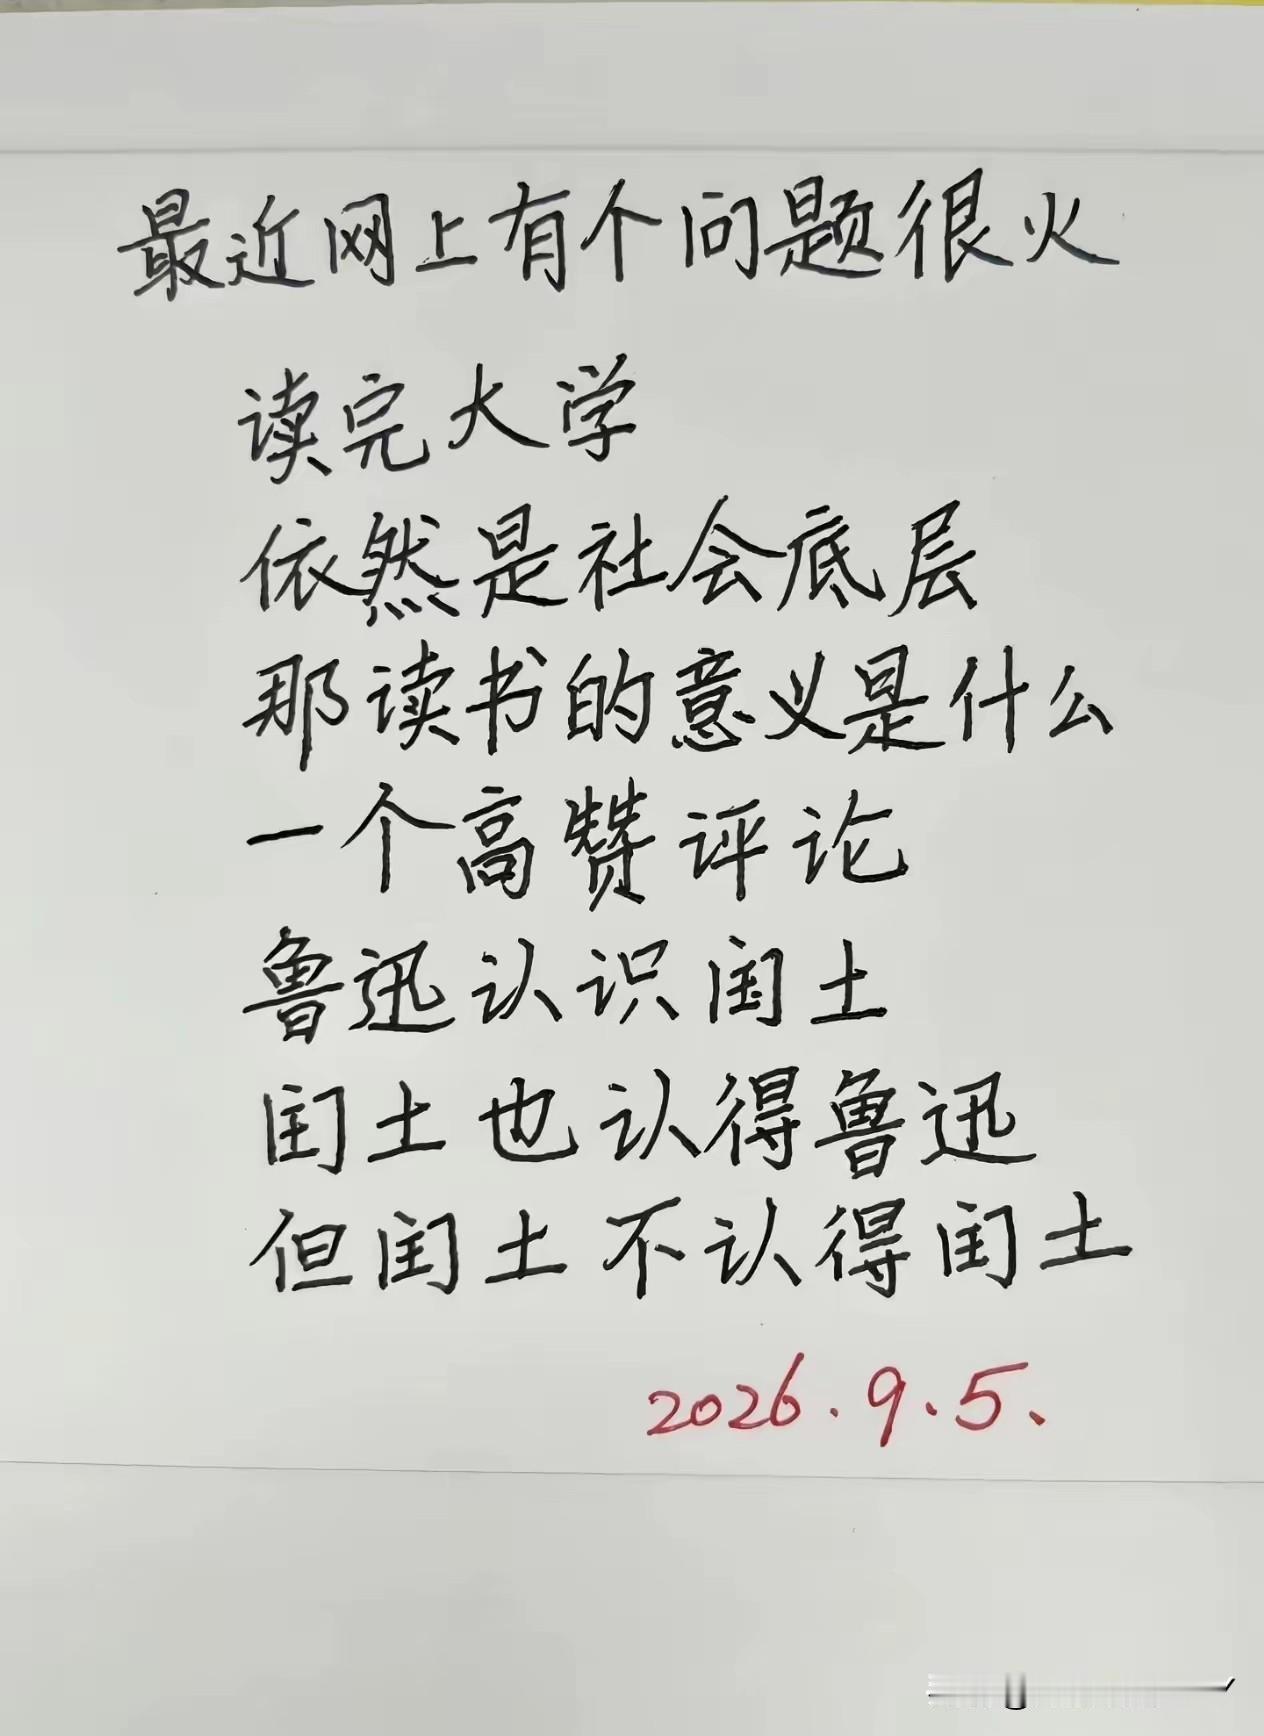 最近网上有个问题很火
读完大学
依然是社会底层
那读书的意义是什么
一个高赞评论
鲁迅认识闰土
闰土也认得鲁迅
但闰土不认得闰土
2026.9.5.